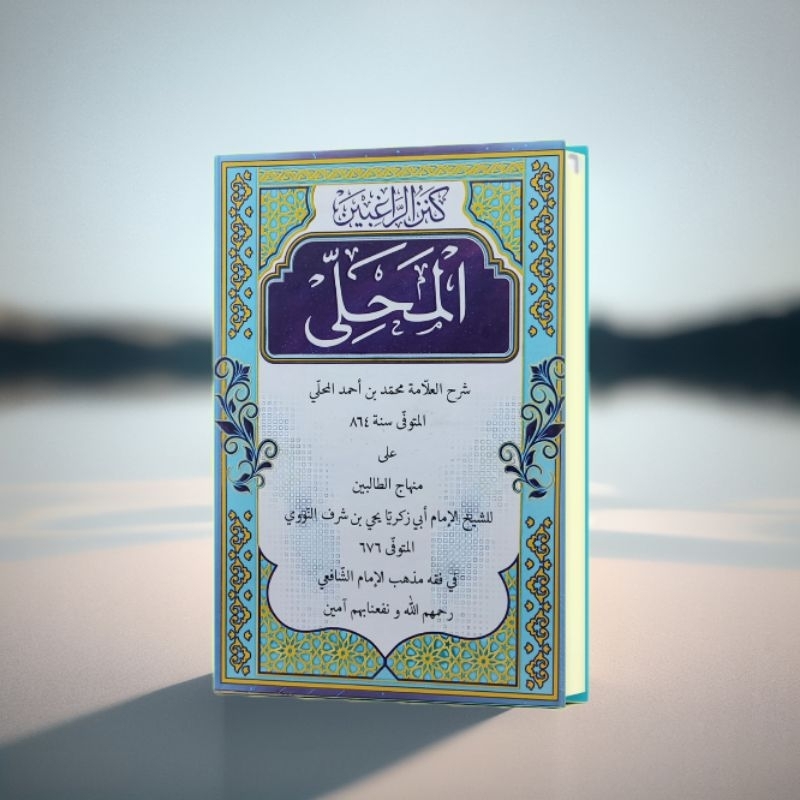 كنز الراغبين
المَحَلِّى
شرح العلّامة محمّد بن أحمد المحلّي
المتوفّى سنة ٨٦٤
على
منهاج الطالبين
للشيخ الإمام أبي زكريّا يحي بن شرف النّووي
المتوفّى ٦٧٦
في فقه مذهب الإمام الشّافعي
رحمهم الله و نفعنابهم آمين